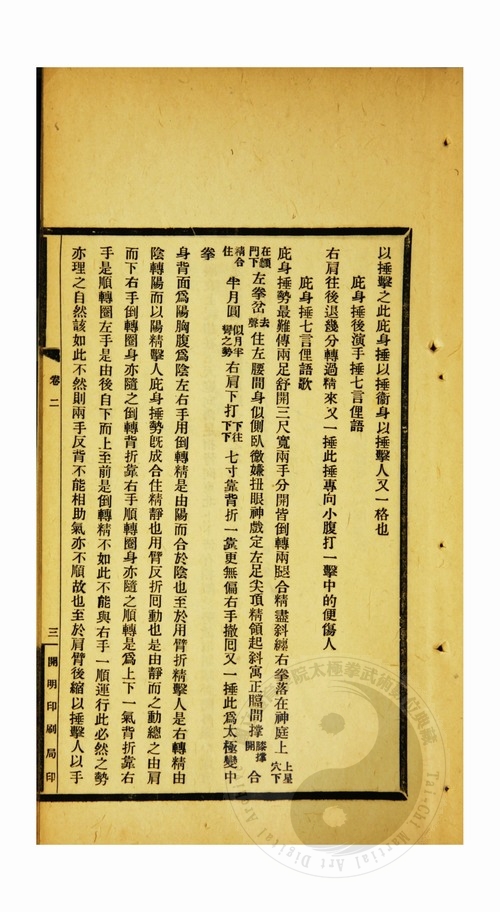 以捶擊之此庇身捶以捶衞身以捶擊人又一格也
庇身捶後演手捶七言俚語
右肩往後退幾分轉過精來又一捶此捶專向小腹打一擊中的便傷人
庇身捶七言俚語歌
庇身捶勢最難傳兩足舒開三尺寬兩手分開皆倒轉兩腿合精盡斜纏右拳落在神庭上上星穴下
在顖門下左拳岔去聲住左腰間身似側臥微嫌扭眼神戲定左足尖頂精領起斜寓正膃間撐膝撐開合
精令住半月圓似月半彎之勢右肩下打下往下七寸靠背折一靠更無偏右手撤回又一捶此爲太極變中
拳
身背面爲陽胸腹爲陰左右手用倒轉精是由陽而合於陰也至於用臂折精擊人是右轉精由
陰轉陽而以陽精擊人庇身捶勢旣成合住精靜也用臂反折囘動也是由靜而之動總之由肩
而下右手倒轉圈身亦隨之倒轉背折靠右手順轉圈身亦隨之順轉是爲上下一氣背折靠右
手是順轉圈左手是由後自下而上至前是倒轉精不如此不能與右手一順運行此必然之勢
亦理之自然該如此不然則兩手反背不能相助氣亦不順故也至於肩臂後縮以捶擊人以手
卷二
三
開明印刷局印
院太極拳武術數位典藏
Tai-Chi Martial Art Digital Archive